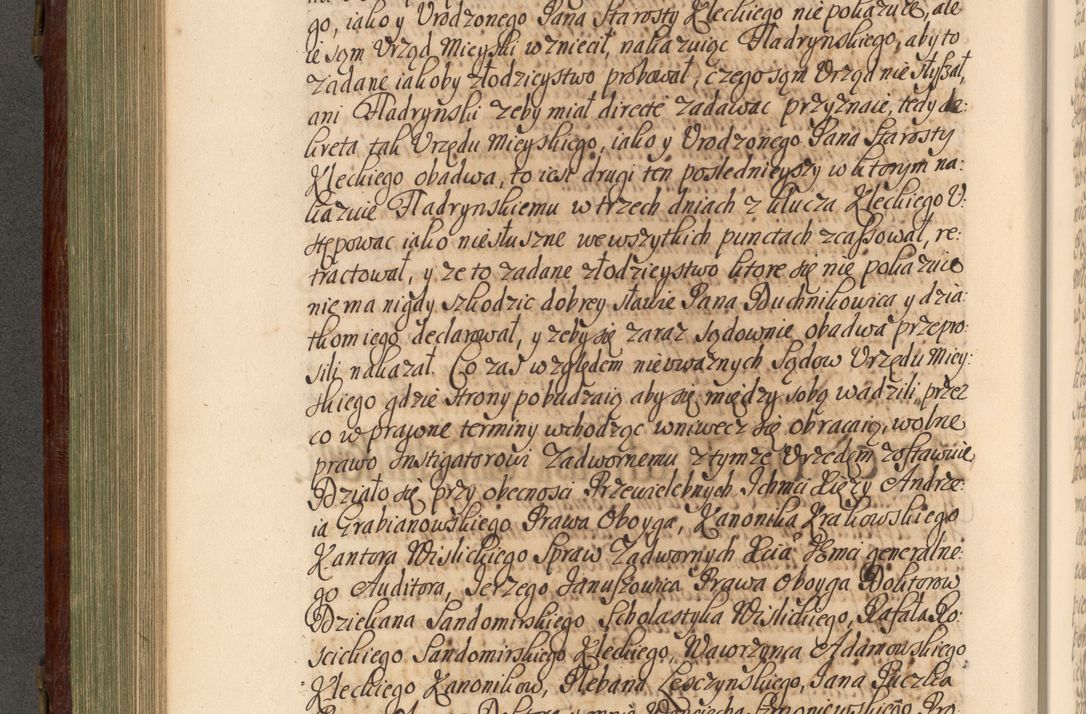 go, iako y Urodzonego Pana Starosty Kleckiego nie pokazuie, ale
ie sąm Urząd Mieyski wzniecił, nakazuiąc Fladryńskiego, aby to
zadane iakoby złodzieystwo probował, czego sąm Urząd nie słyszał,
ani Fladryński zeby miał directe zadawac przyznaie, tedy de:
kreta tak Urzędu Mieyskiego, iako y Urodzonego Pana Starosty
Kleckiego obadwa, to iest drugi ten poslednieyszy w ktorym na:
kazuie Fladrynskiemu w trzech dniach z klucza Kleckiego U:
stępowac iako niesłuszne we wszytkich punctach zcassował, re:
tractował, y ze to zadane złodzieystwo ktore się nie pokazuie
nie ma nigdy szkodzic dobrey sławie Pana Duchnikowica y dzia:
tkom iego declarował, y zeby się zaraz sądownie obadwa przepro:
sili nakazał. Co zaś względem nieuważnych Sądow Urzędu Miey:
skiego gdzie strony pobudzaią aby się między sobą wadzili, przez
co w prawne terminy wchodząc wniwecz się obracaią, wolne
prawo Instigatorowi Zadwornemu z tymze Urzędem zostawuie
Działo się przy obecnosci Przewielebnych Ichmci Xięży Andrze:
ia Grabianowskiego Prawa Oboyga, Kanonika Krakowskiego
Kantora Wislickiego Spraw Zadwornych Xcia Jmci generalne:
go Auditora, Jerzego Januszowica Prawa Oboyga Doktorow
Dziekana Sandomirskiego Scholastyka Wislickiego, Rafała Ko:
scickiego Sandomirskiego Kleckiego, Wawrzynca Adamowskiego
Kleckiego Kanonikow, Plebana Lesczynskiego, Jana Paczka